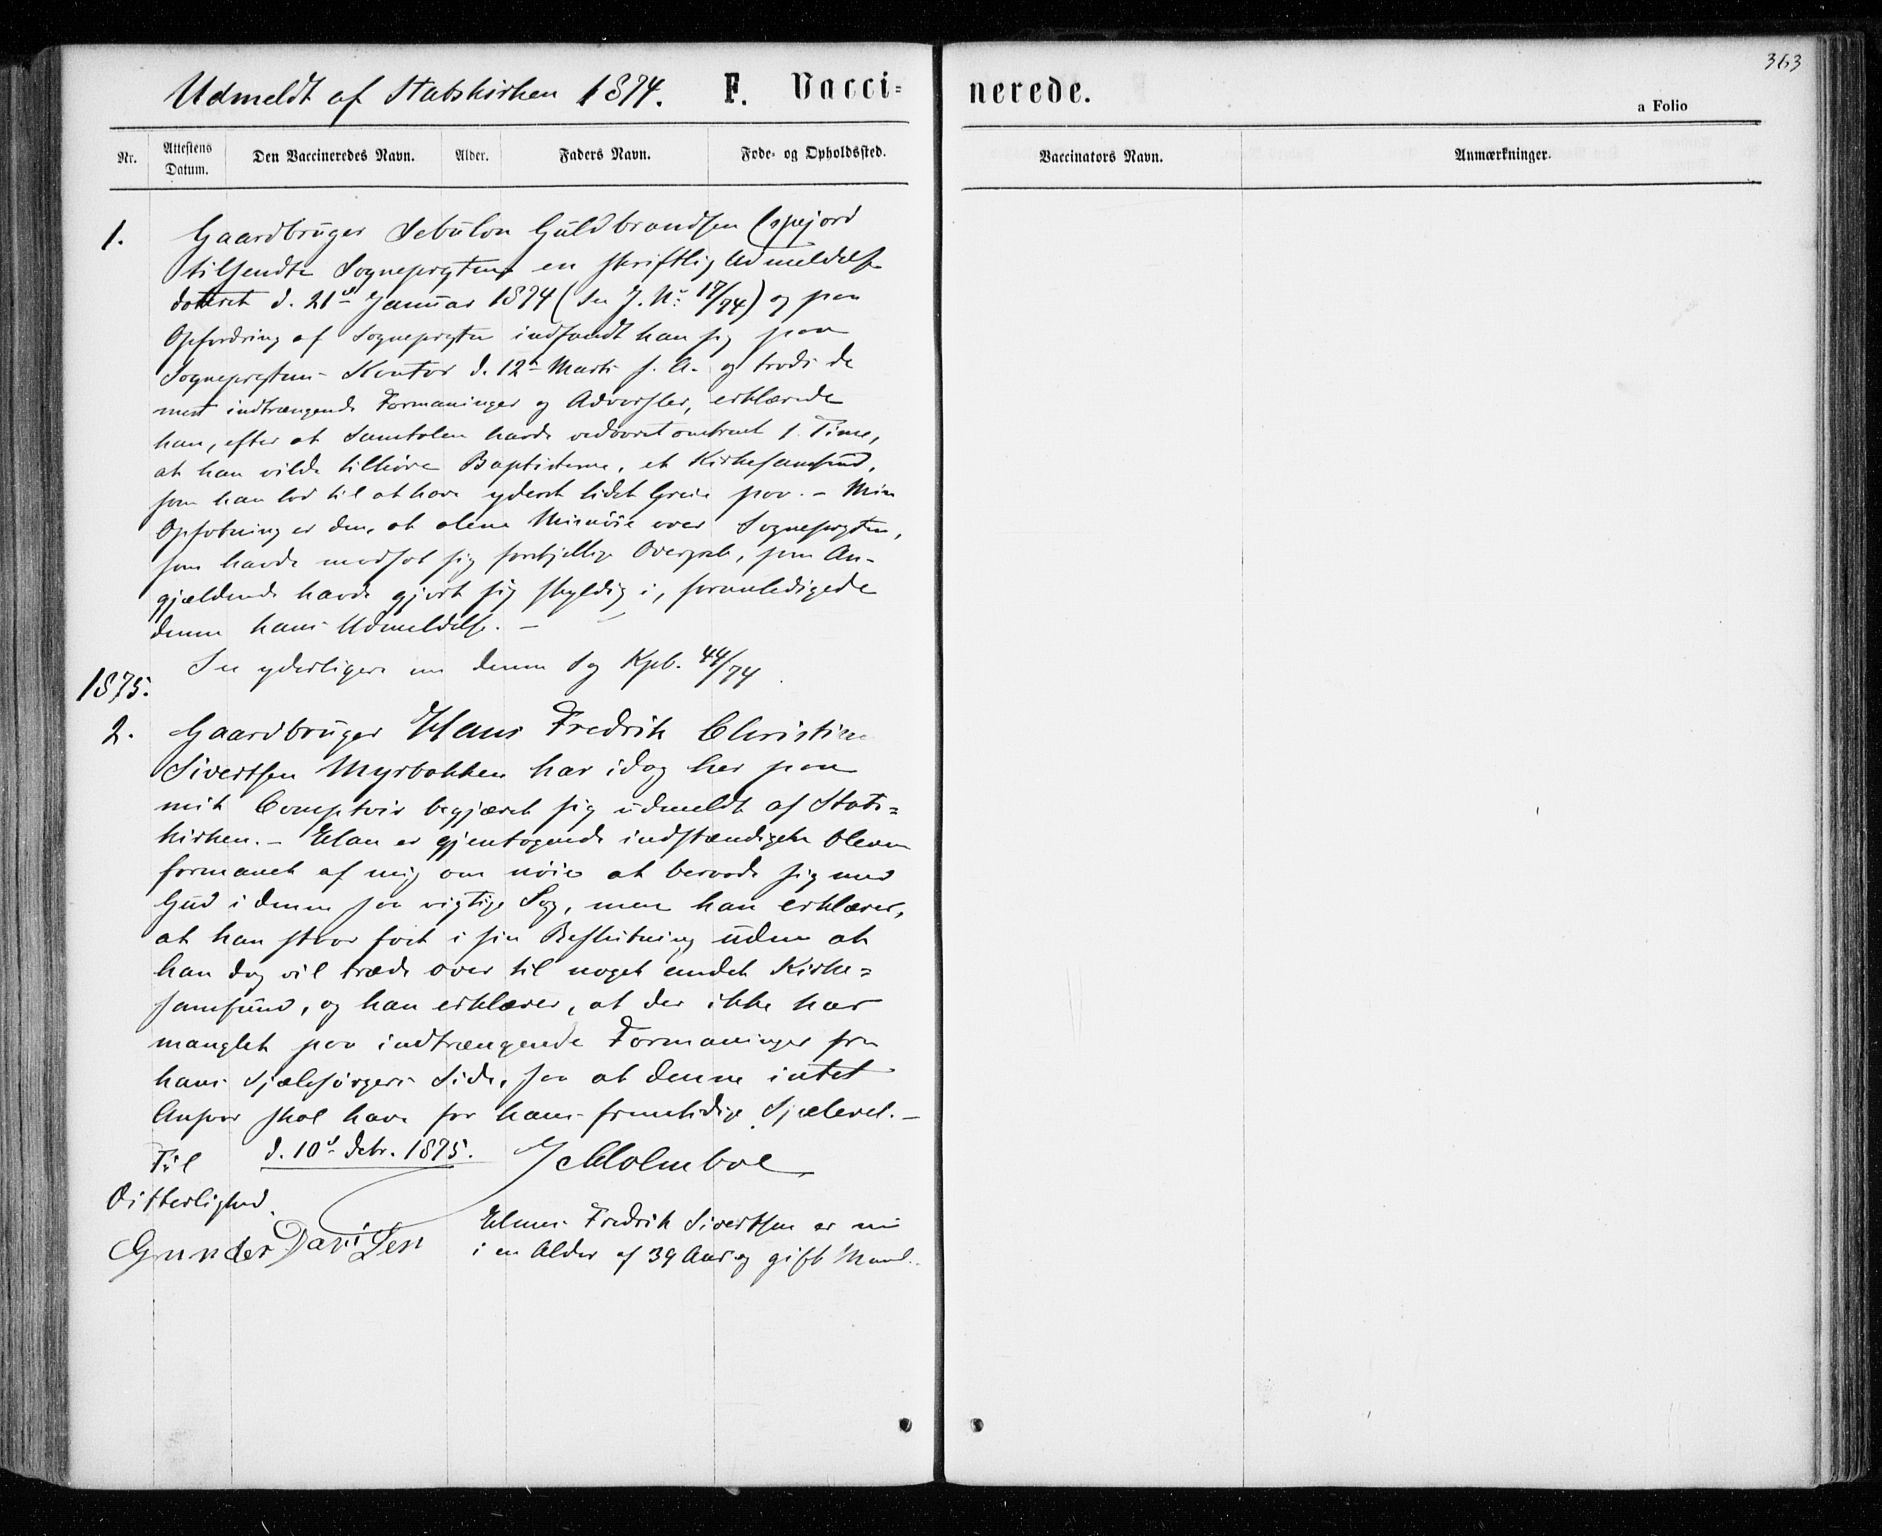 363
Udmeldt af Statskirken 1874. F. Vacci= nerede.
a Folio
Nr. Attestens Datum. Den Vaccineredes Navn. Alder. Faders Navn. Føde- og Opholdssted. Vaccinators Navn. Anmærkninger.
1. Gaardbruger Sebulon Guldbrandsen Espejord
tilsendte Sognepræsten en skriftlig Udmeldelse
dateret d. 21de Januar 1874 (See J. No. 17/74) og paa
Opfordring af Sognepræsten indfandt han sig paa
Sognepræstens Kontor d. 12te Marts s. A. og trods de
mest indtrængende Formaninger og Advarsler, erklærede
han, efter at Samtalen havde vedvaret omtrent 1 Time,
at han vilde tilhøre Baptisterne, et Kirkesamfund,
som han lod til at have yderst lidet Greie paa. - Min
Opfatning er den, at alene Misnøie over Sognepræsten,
som havde modsat sig forskjellige Overgreb, som An-
gjældende havde gjort sig skyldig i, foranledigede
denne hans Udmeldelse. -
See yderligere om denne Sag Kpb. 44/74.
1875.
2. Gaardbruger Hans Fredrik Christian
Sivertsen Myrbakken har idag her paa
mit Comptoir begjæret sig udmeldt af Stats=
kirken. - Han er gjentagende indstændigen bleven
formanet af mig om nøie at beraade sig med
Gud i denne saa vigtige Sag, men han erklærer,
at han staar fast i sin Beslutning uden at
han dog vil træde over til noget andet Kirke=
samfund, og han erklærer, at der ikke har
manglet paa indtrængende Formaninger fra
hans Sjælesørgers Side, saa at denne intet
Ansvar skal have for hans fremtidige Sjælevel. -
d. 10de 1875. Holmboe
Til
Vitterlighed.
Hans Fredrik Sivertsen er nu
Gunder DaviSen
i en Alder af 39 Aar og gift Mand.